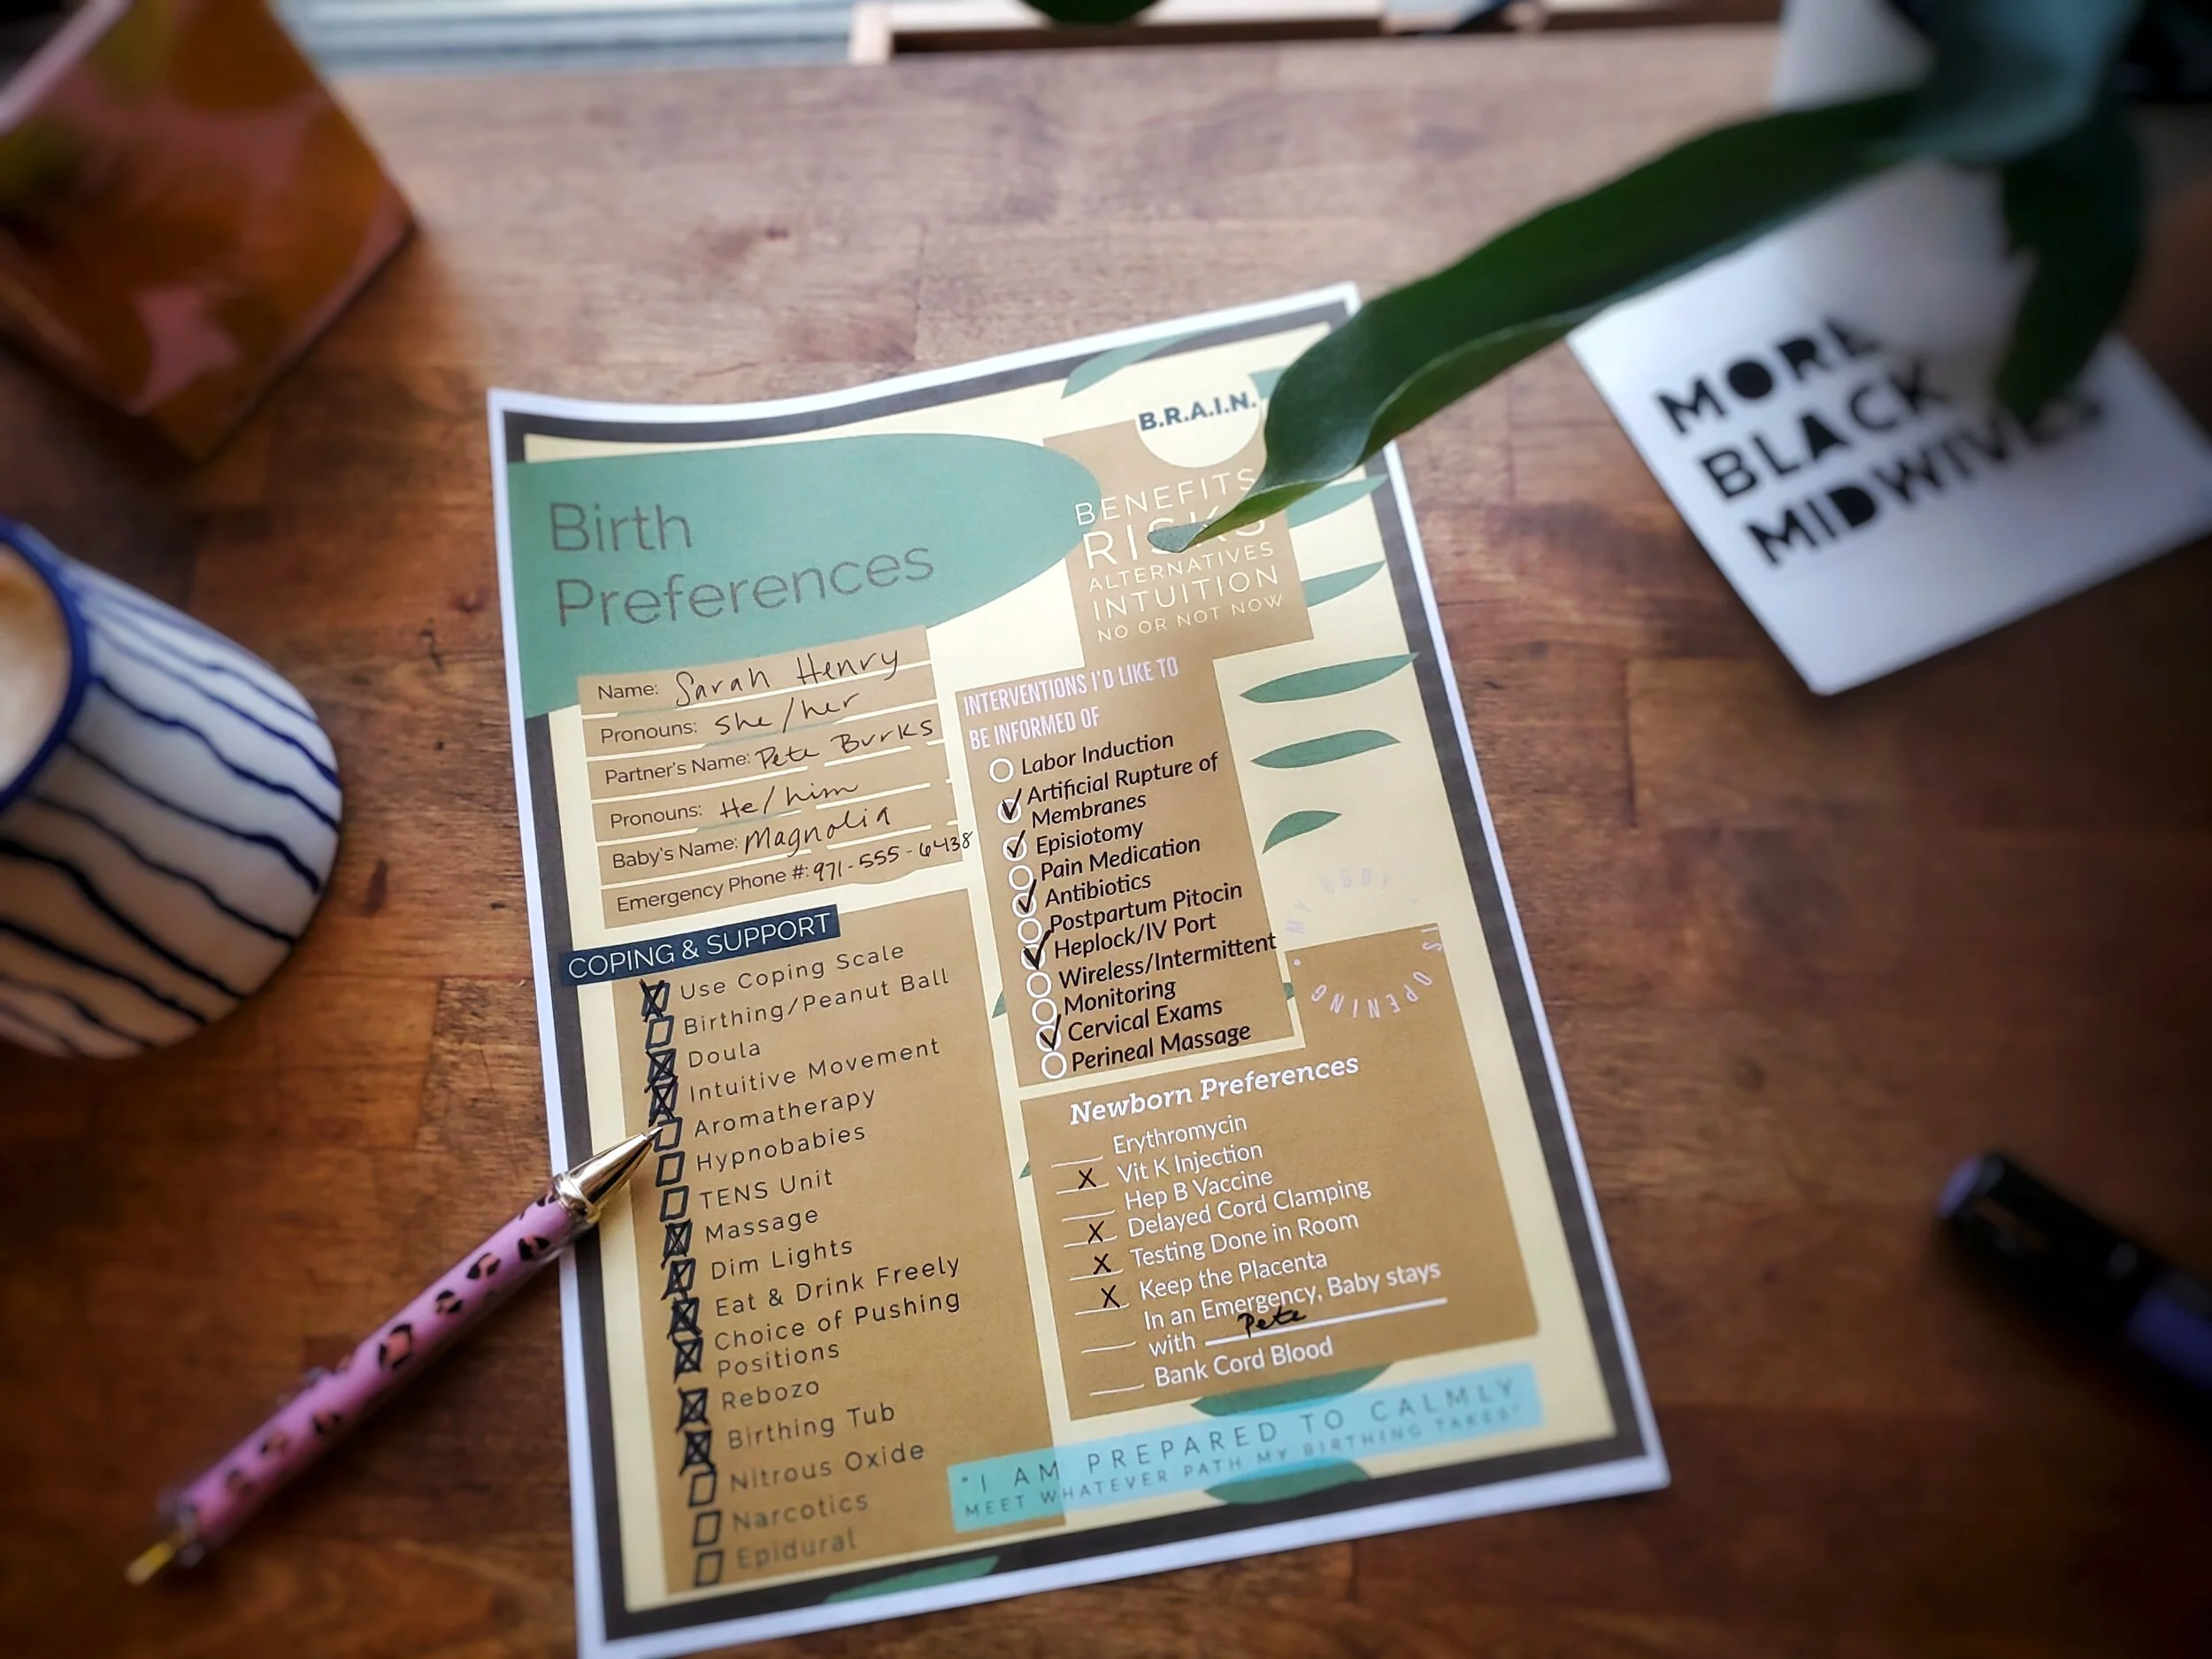 Birth
Preferences
Name: Sarah Henry
Pronouns: she/her
Partner's Name: Pete Burks
Pronouns: He/him
Baby's Name: Magnolia
Emergency Phone #: 971-555-6438
COPING & SUPPORT
Use Coping Scale
Birthing/Peanut Ball
Doula
Intuitive Movement
Aromatherapy
Hypnobabies
TENS Unit
Massage
Dim Lights
Eat & Drink Freely
Choice of Pushing
Positions
Rebozo
Birthing Tub
Nitrous Oxide
Narcotics
Epidural
B.R.A.I.N.
BENEFITS
RISKS
ALTERNATIVES
INTUITION
NO OR NOT NOW
INTERVENTIONS I'D LIKE TO
BE INFORMED OF
Labor Induction
Artificial Rupture of
Membranes
Episiotomy
Pain Medication
Antibiotics
Postpartum Pitocin
Heplock/IV Port
Wireless/Intermittent
Monitoring
Cervical Exams
Perineal Massage
MY BODY IS OPENING
Newborn Preferences
Erythromycin
X Vit K Injection
Hep B Vaccine
X Delayed Cord Clamping
X Testing Done in Room
X Keep the Placenta
In an Emergency, Baby stays
with Pete
Bank Cord Blood
"I AM PREPARED TO CALMLY
MEET WHATEVER PATH MY BIRTHING TAKES"
MORE
BLACK
MIDWIVES